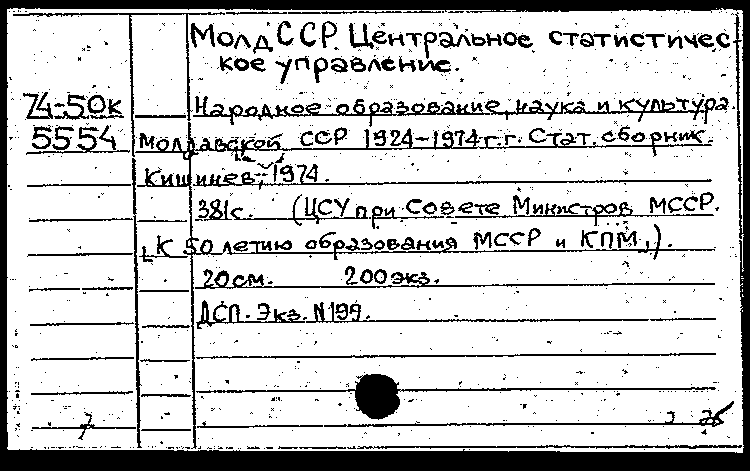 МолдССР. Центральное статистичес-
кое управление.
74-50к Народное образование, наука и культура
5554 Молдавской ССР 1924-1974г.г. Стат. сборник.
Кишинев, 1974.
381с. (ЦСУ при Совете Министров МССР.
„К 50 летию образования МССР и КПМ„).
20см. 200экз.
ДСП. Экз. N199.
7